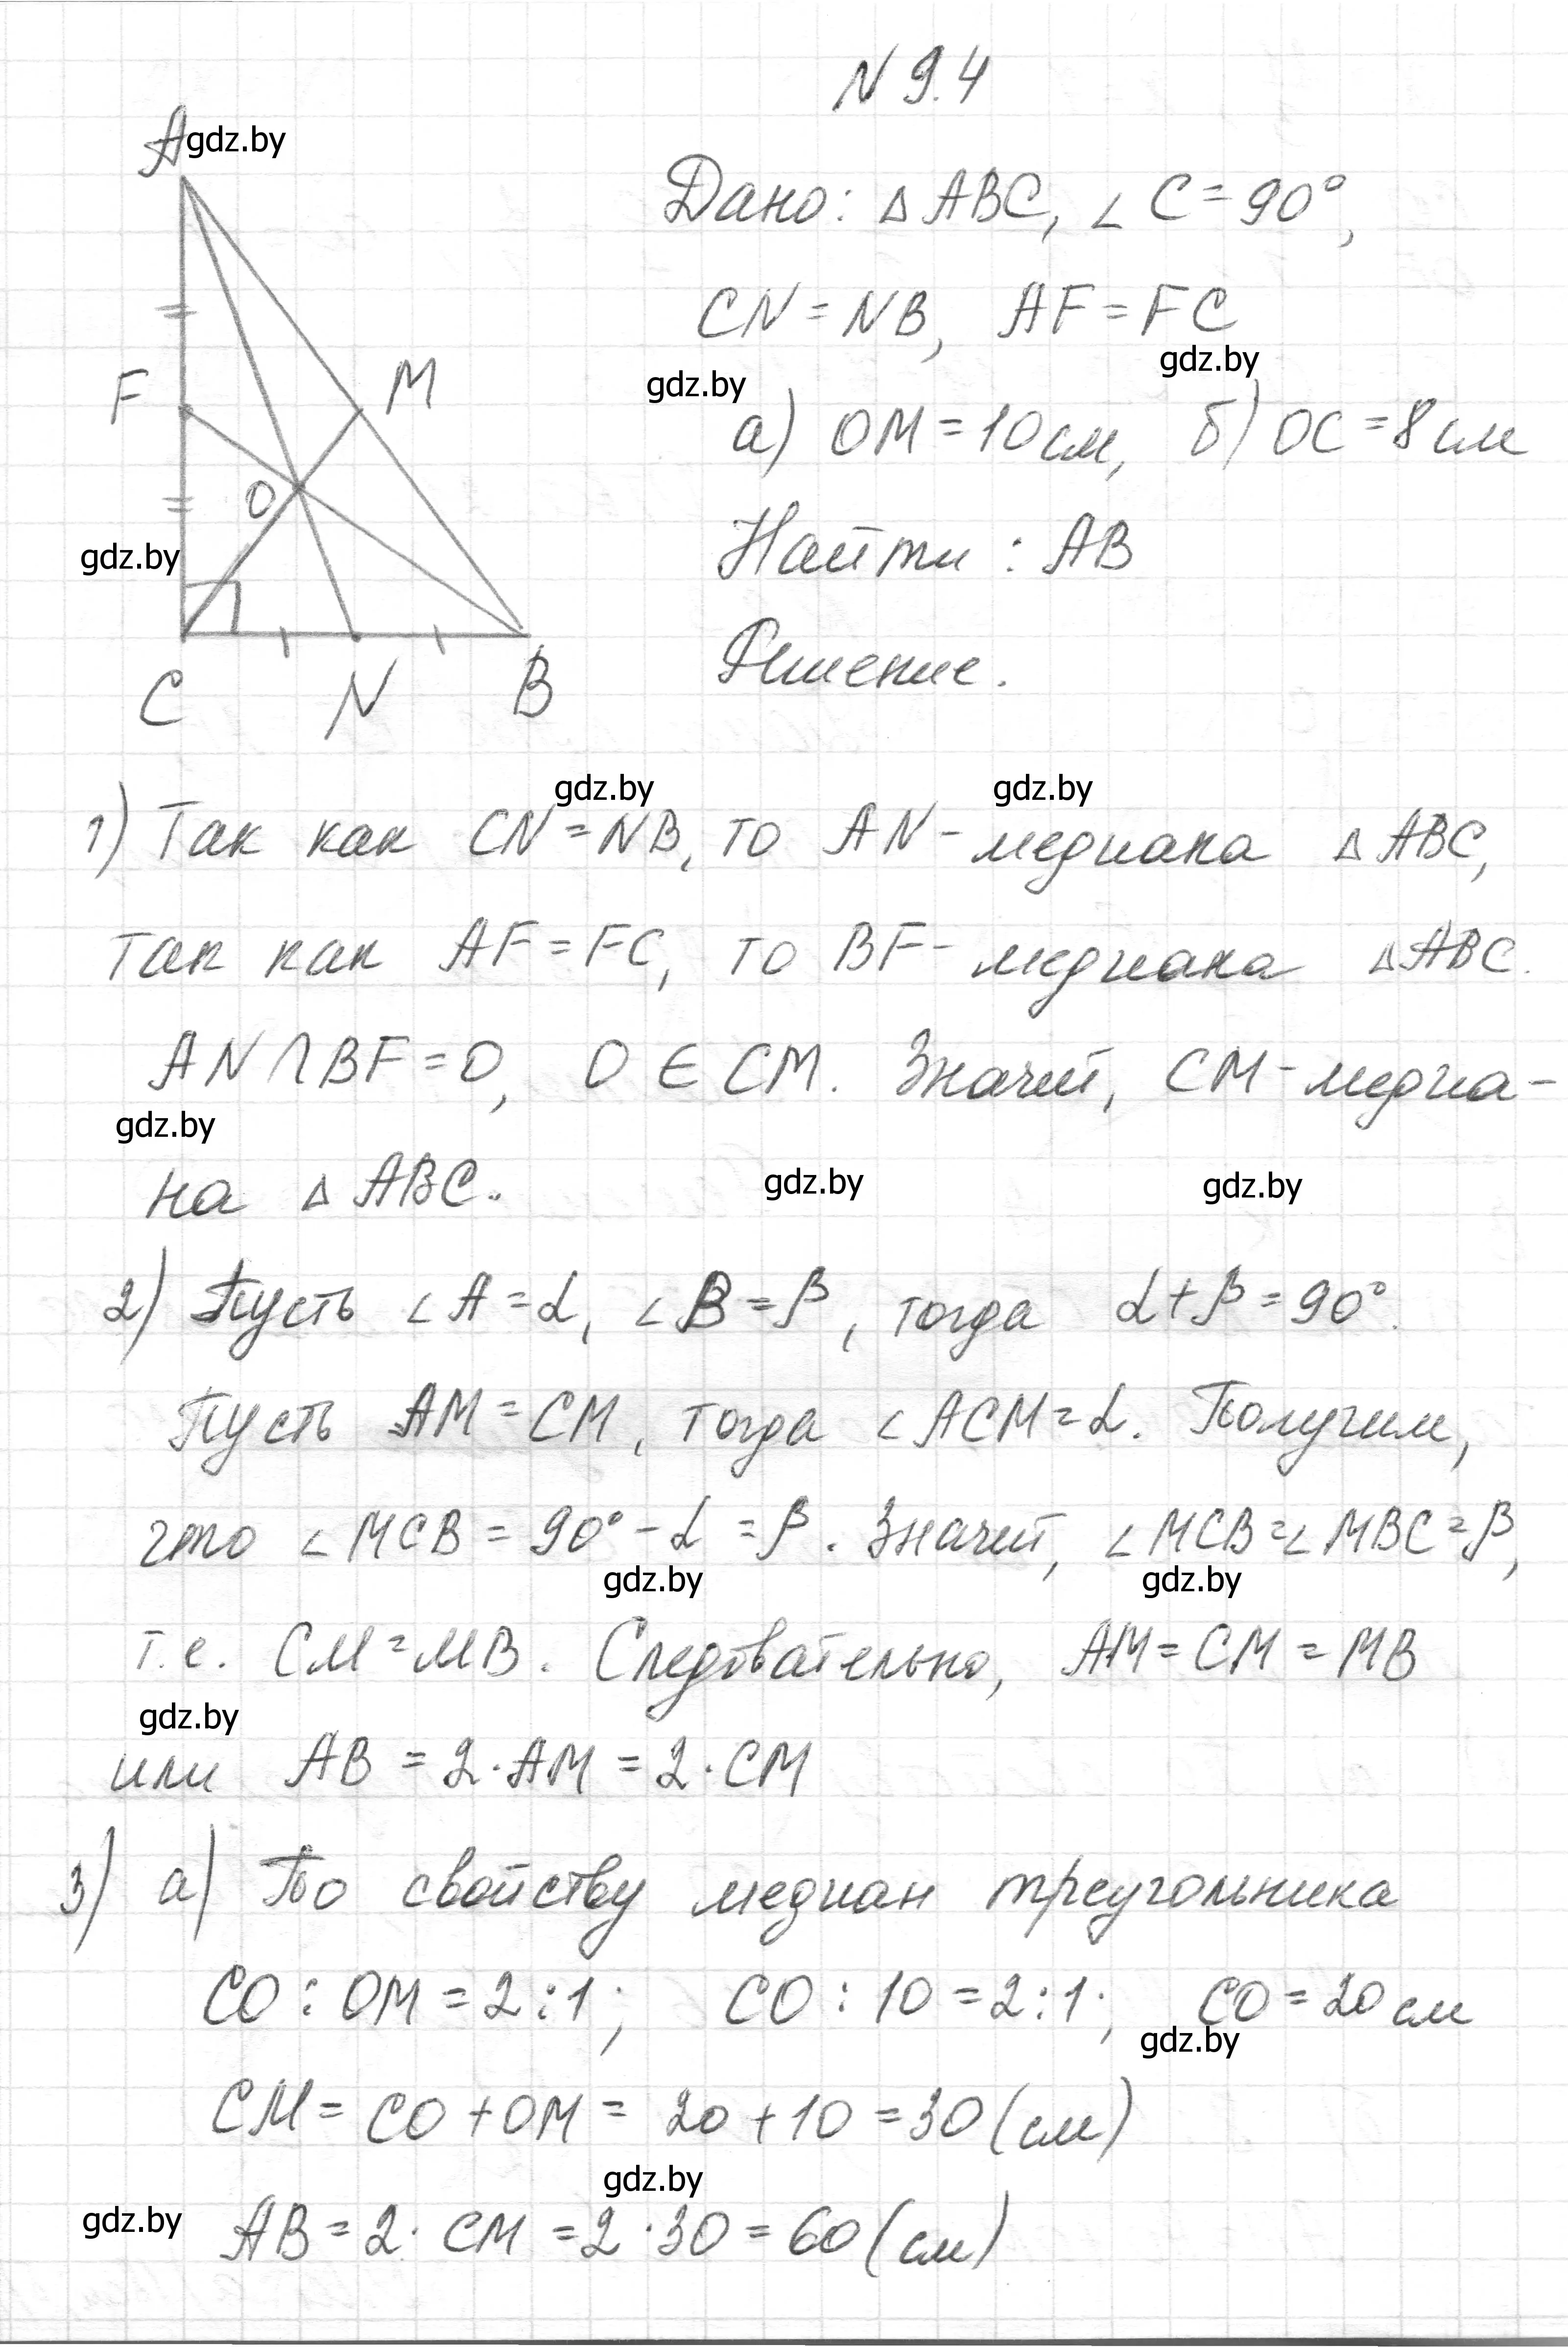 N 9.4
A
gdz.by
Дано: △ ABC, ∠ C = 90°,
CN = NB, AF = FC
gdz.by
gdz.by
F
M
а) OM = 10 см, б) OC = 8 см
O
gdz.by
Найти : AB
Решение.
C
N
B
gdz.by
gdz.by
1) Так как CN = NB, то AN - медиана △ ABC,
так как AF = FC, то BF - медиана △ ABC.
AN ∩ BF = O, O ∈ CM. Значит, CM - медиа-
gdz.by
на △ ABC.
gdz.by
gdz.by
2) Пусть ∠ A = α, ∠ B = β, тогда α + β = 90°.
Пусть AM = CM, тогда ∠ ACM = α. Получим,
что ∠ MCB = 90° - α = β. Значит, ∠ MCB = ∠ MBC = β,
gdz.by
gdz.by
т.е. CM = MB. Следовательно, AM = CM = MB
gdz.by
или AB = 2 · AM = 2 · CM
3) а) По свойству медиан треугольника
CO : OM = 2 : 1; CO : 10 = 2 : 1; CO = 20 см
gdz.by
CM = CO + OM = 20 + 10 = 30 (см)
gdz.by
gdz.by
AB = 2 · CM = 2 · 30 = 60 (см)